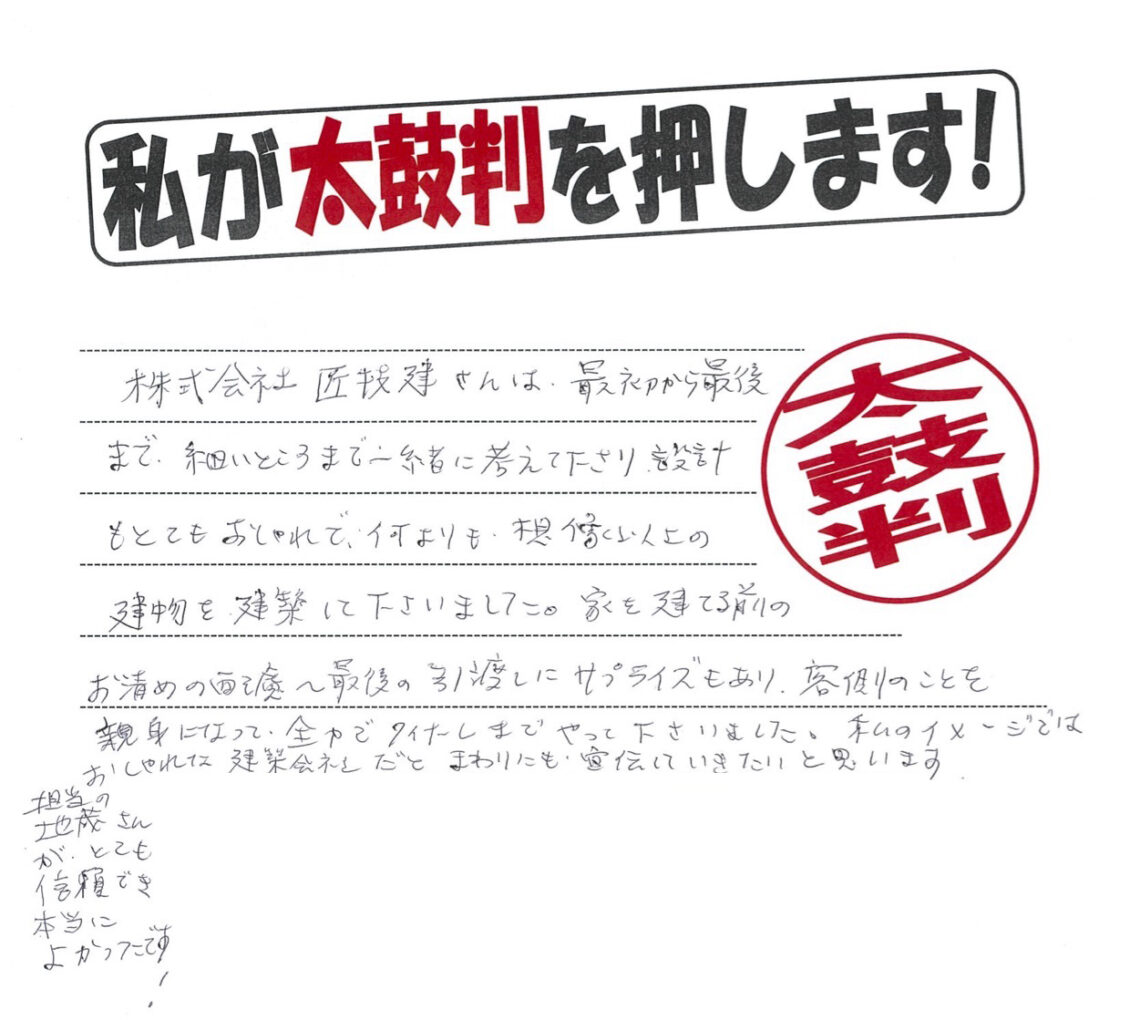 私が太鼓判を押します!
太鼓判
株式会社 匠技建さんは、最初から最後
まで、細いところまで一緒に考えて下さり、設計
もとてもおしゃれで、何よりも、想像以上の
建物を建築して下さいました。家を建てる前の
お清めの 〜最後の引渡しにサプライズもあり、客側のことを
親身になって、全力で までやって下さいました。私のイメージでは
おしゃれな建築会社だと まわりにも、宣伝していきたいと思います
担当の
地蔵さん
が、とても
信頼でき
本当に
よかったです
!